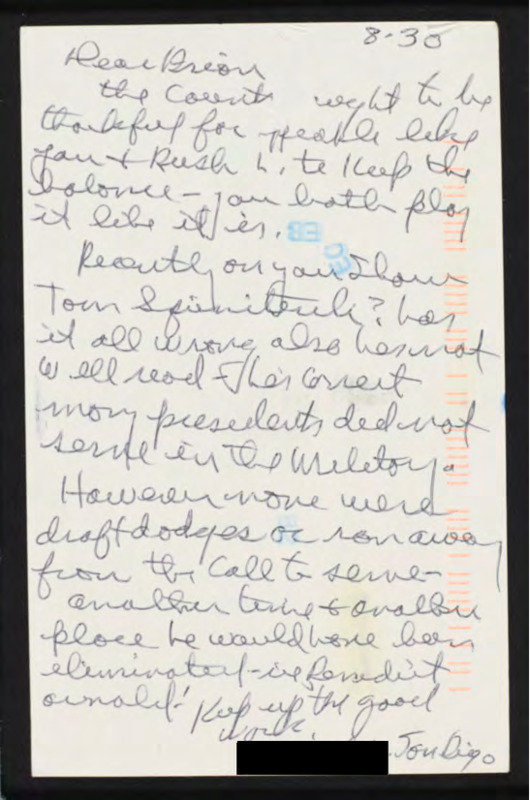 8-30
Dear Brion
the Country ought to be
thankful for people like
you + Rush L. to keep the
balance - you both play
it like it is.
EB
Recently on your show
Tom ? has
it all wrong also he's not
well read - he's correct
many presidents did not
serve in the Military.
However none were
draft dodges or ran away
from the call to serve -
another time & another
place he would have been
eliminated - ie Benedict
Arnold!
Keep up the good
work,
San Diego